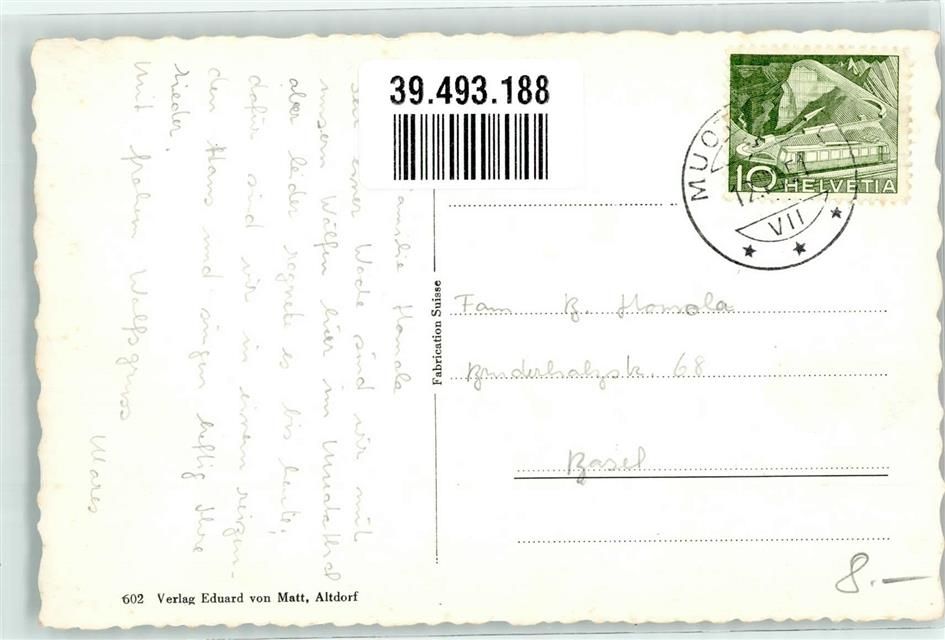 39.493.188
Familie Homola
Seit einer Woche sind wir mit
unsern Wölfen hier im Muotathal
aber leider regnete es bis heute,
dafür sind wir in einem reizen-
den Haus und singen heftig Ihre
Lieder.
Mit frohem Wolfsgruss
Fabrication Suisse
MUO
VII
10 HELVETIA
Fam B. Homola
Bruderholzstr. 68
Basel
8.—
602 Verlag Eduard von Matt, Altdorf